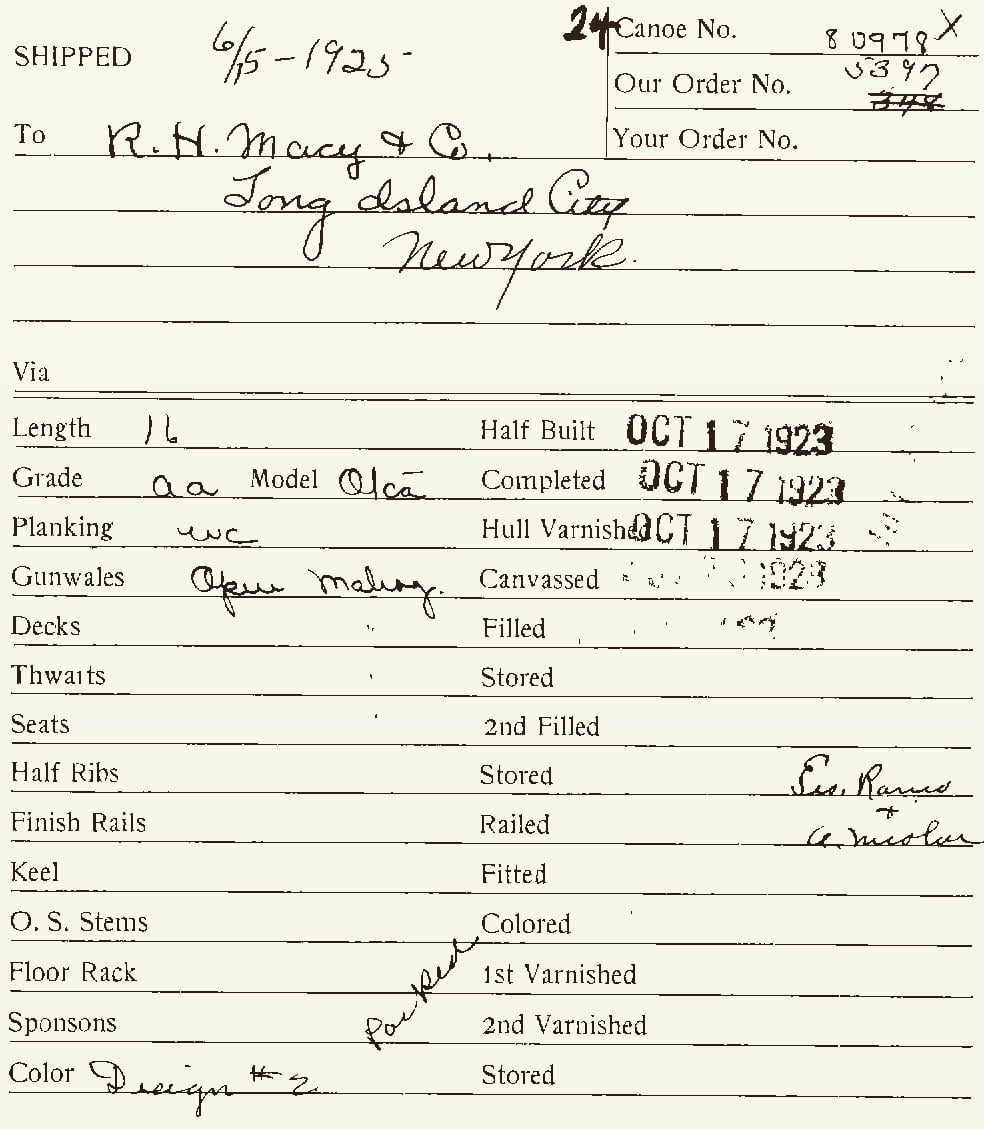 24 Canoe No. 80978 X
SHIPPED 6/15-1925
Our Order No. 5397 348
To R. H. Macy & Co. Your Order No.
Long Island City
New York.
Via
Length 16 Half Built OCT 17 1923
Grade aa Model Otca Completed OCT 17 1923
Planking wc Hull Varnished OCT 17 1923
Gunwales Open Mahog. Canvassed 1923
Decks " Filled
Thwarts Stored
Seats 2nd Filled
Half Ribs Stored Geo.
Finish Rails Railed +
Keel Fitted
O. S. Stems Colored
Floor Rack 1st Varnished
Sponsons 2nd Varnished
Color Design #2 Stored